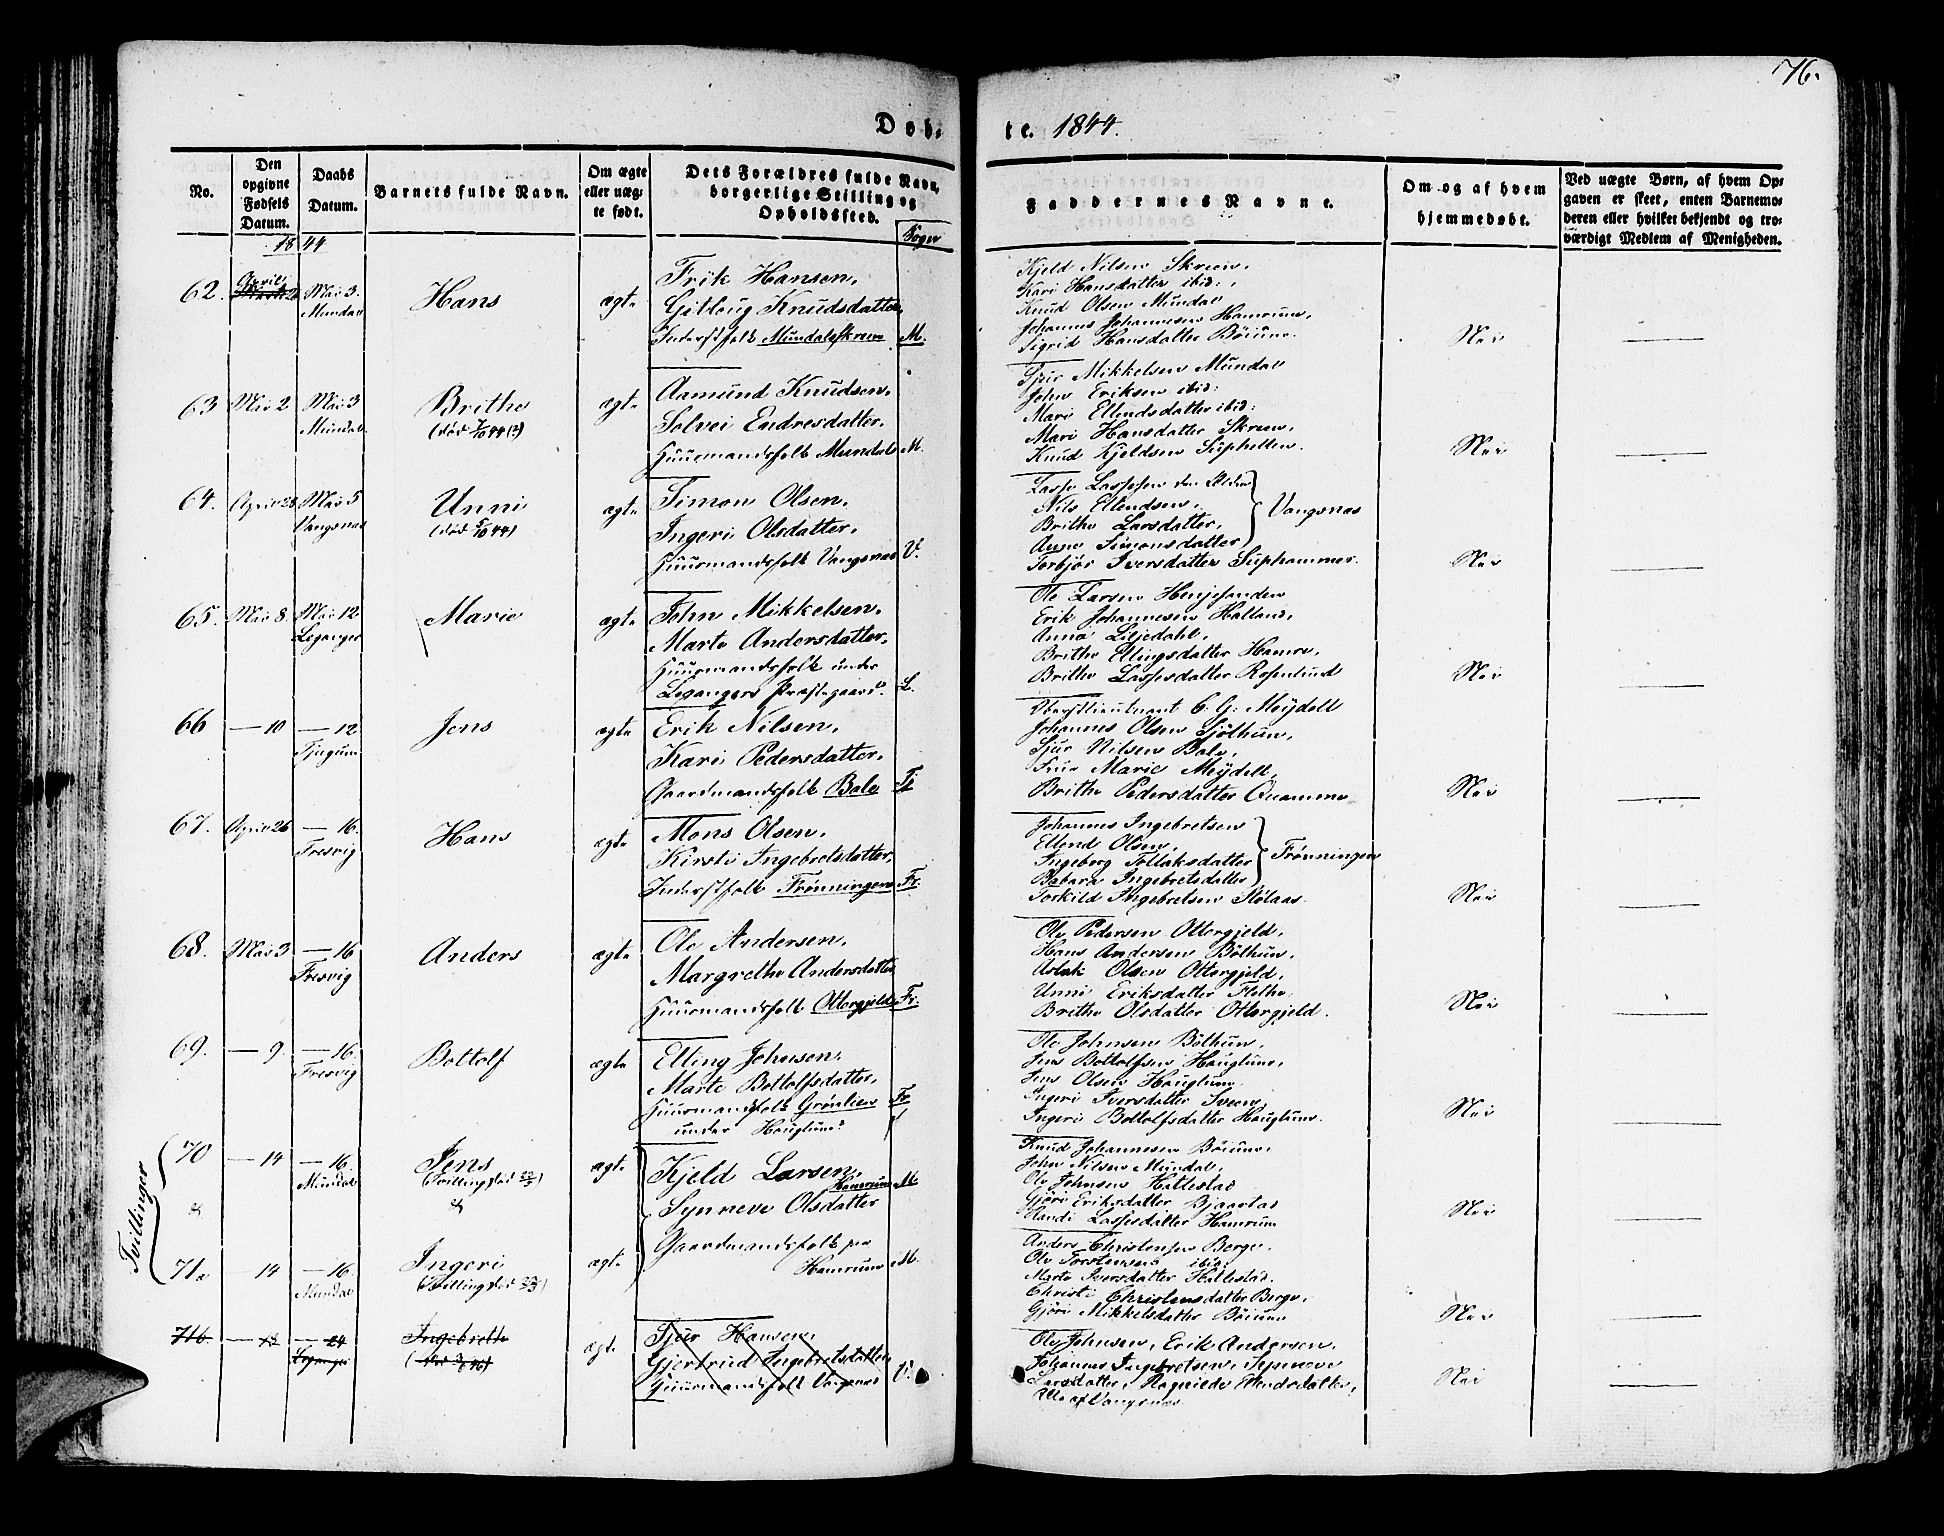 76.
Døb-
te. 1844.
No.
Den opgivne Fødsels Datum.
Daabs Datum.
Barnets fulde Navn.
Om ægte eller uægte født.
Dets Forældres fulde Navn, borgerlige Stilling og Opholdssted.
Sogn
Faddernes Navne.
Om og af hvem hjemmedøbt.
Ved uægte Børn, af hvem Opgaven er skeet, enten Barnemoderen eller hvilket bekjendt og troværdigt Medlem af Menigheden.
1844
62. April Mai 3. Mundal Hans ægte
Erik Hansen,
Gitloug Knudsdatter,
Inderstfolk Mundalsskreen M.
Kjeld Nilsen Skreen,
Kari Hansdatter ibid:,
Knud Olsen Mundal
Johannes Johannesen Hamrum,
Sigrid Hansdatter Böium. Nei
63 Mai 2 Mai 3 Mundal. Brithe ægte
Aamund Knudsen,
Solvei Endresdatter.
Huusmandsfolk Mundal M.
Sjur Mikkelsen Mundal
John Eriksen ibid:
Mari Ellendsdatter ibid:
Mari Hansdatter Skreen,
Knud Kjeldsen Suphellen. Nei
64. April 28 Mai 5 Vangsnæs Unni
(død 5/10 44) ægte
Simon Olsen,
Ingeri Olsdatter,
Huusmandsfolk Vangsnæs V.
Lasse Lassesen den Eldre
Nils Ellendsen,
Brithe Larsdatter,
Anne Simonsdatter
Vangsnæs
Torbjør Iversdatter Suphammer. Nei
65. Mai 8. Mai 12 Leganger Marie ægte
John Mikkelsen,
Marte Andersdatter,
Huusmandsfolk under
Legangers Præstegaard. L.
Ole Larsen Henjesanden
Erik Johannesen Halland,
Anna Liljedahl,
Brithe Ellingsdatter Hamre,
Brithe Lassesdatter Rosenlund Nei
66 — 10 — 12 Tjugum Jens ægte
Erik Nilsen,
Kari Pedersdatter,
Gaardmandsfolk Bale Tj
Oberstlieutnant C. G: Meydell
Johannes Olsen Sjöthun,
Sjur Nilsen Bale,
Frue Marie Meydell,
Brithe Pedersdatter Quamme Nei
67. April 26 — 16. Fresvig Hans ægte
Mons Olsen,
Kirsti Ingebretsdatter,
Inderstfolk Frønningen Fr.
Johannes Ingebretsen
Ellend Olsen,
Ingeborg Tollaksdatter
Babara Ingebretsdatter
Frønningen
Torkild Ingebretsen Stölaas. Nei
68. Mai 3 — 16 Fresvig Anders ægte
Ole Andersen,
Margrethe Andersdatter
Huusmandsfolk Ottergjeld Fr.
Ole Pedersen Ottergjeld,
Hans Andersen Böthun,
Aslak Olsen Ottergjeld,
Unni Eriksdatter Flethe
Brithe Olsdatter Ottergjeld. Nei
69. — 9. — 16. Fresvig Bottolf ægte
Elling Johnsen,
Marte Bottolfsdatter,
Huusmandsfolk Grønlien Fr
under Hauglum
Ole Johnsen Böthun,
Jens Bottolfsen Hauglum,
Jens Olsen Hauglum
Ingeri Iversdatter Sveen,
Ingeri Bottolfsdatter Hauglum. Nei
Tvillinger
70 — 14 — 16. Mundal Jens
(Tvilling død 22/5) ægte
&
Kjeld Larsen,
Hamrum M.
Synneve Olsdatter
Gaardmandsfolk paa
Hamrum M.
Knud Johannesen Böium,
John Nilsen Mundal,
Ole Johnsen Hallestad
Gjöri Eriksdatter Bjaastad
Randi Lassesdatter Hamrum Nei
71a — 14 — 16. Mundal Ingeri
(Tvilling død 23/5) ægte
Anders Christensen Berge,
Ole Torstensen ibid:
Marte Iversdatter Hallestad.
Christi Christensdatter Berge,
Gjöri Mikkelsdatter Böium Nei
71b — 12 — 24 Leganger Ingebreth ægte
Sjur Hansen,
Gjertrud Ingebretsdatter
Huusmandsfolk Vangsnæs V.
Ole Johnsen, Erik Andersen,
Johannes Ingebretsen, Synneve
Larsdatter, Ragnilde Ellendsdatter,
Alle af Vangsnæs Nei